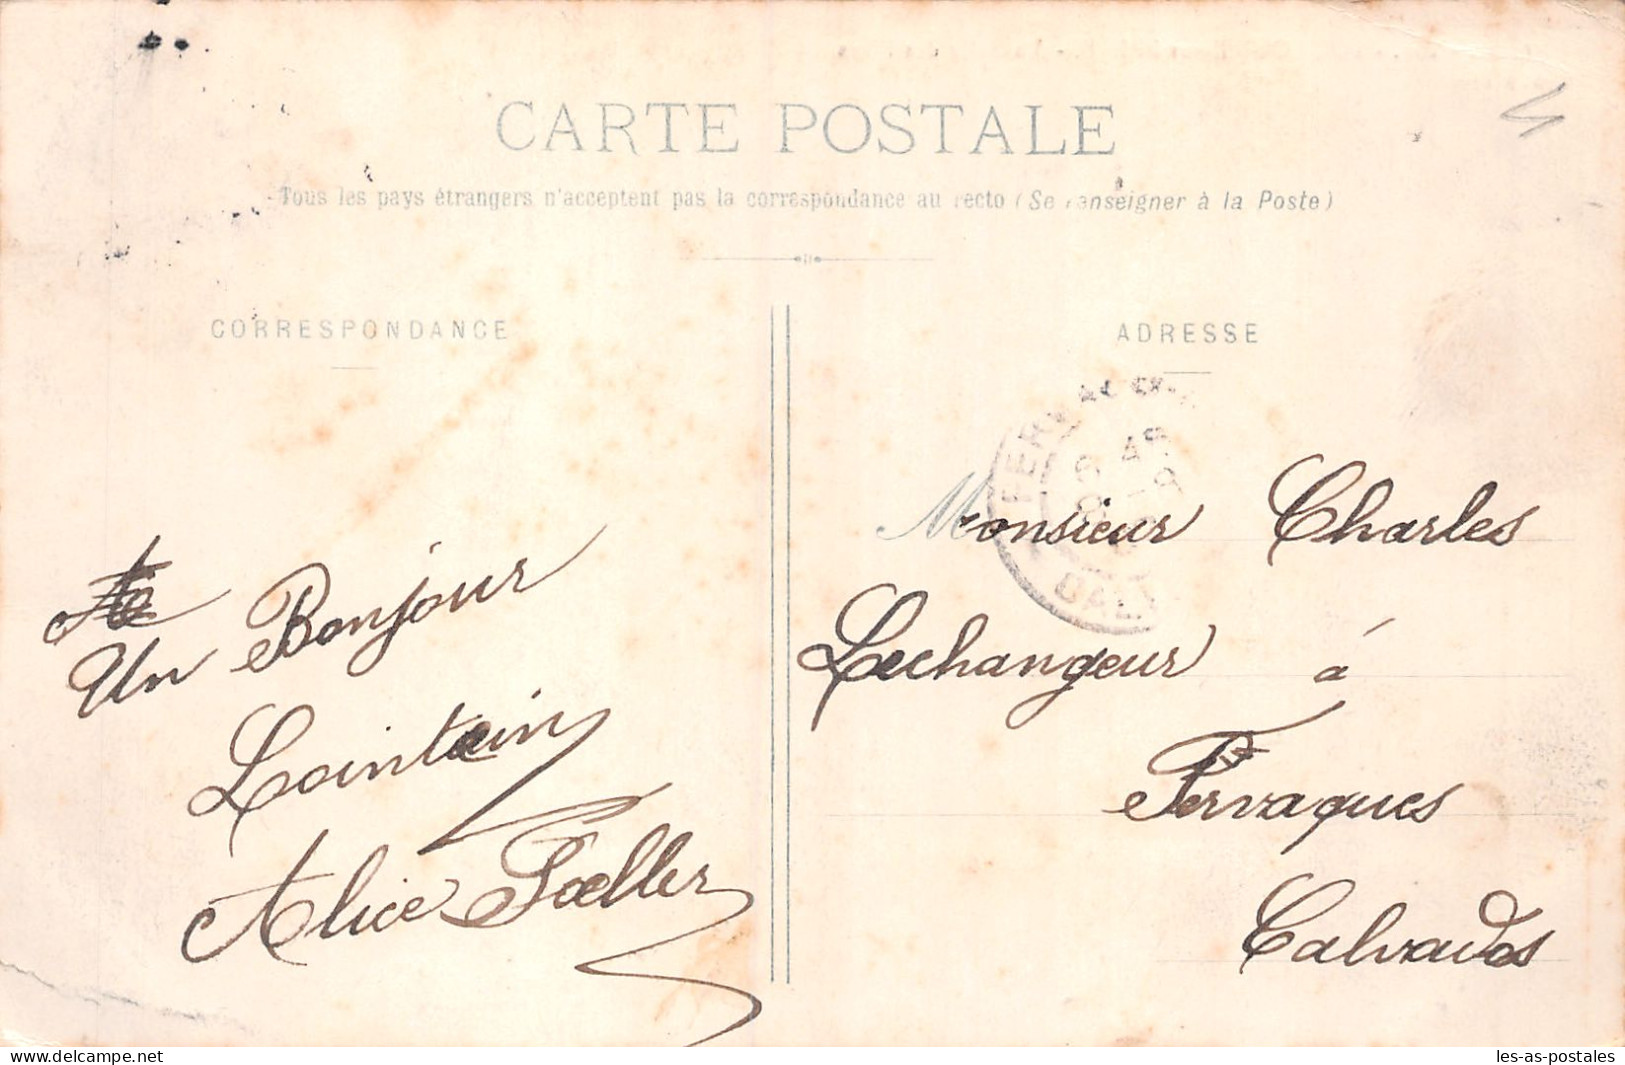 CARTE POSTALE
Tous les pays étrangers n'acceptent pas la correspondance au recto (Se renseigner à la Poste)
CORRESPONDANCE
Un Bonjour
Lointain
Alice
ADRESSE
Monsieur Charles
Lechangeur à
Fervaques
Calvados
www.delcampe.net
les-as-postales